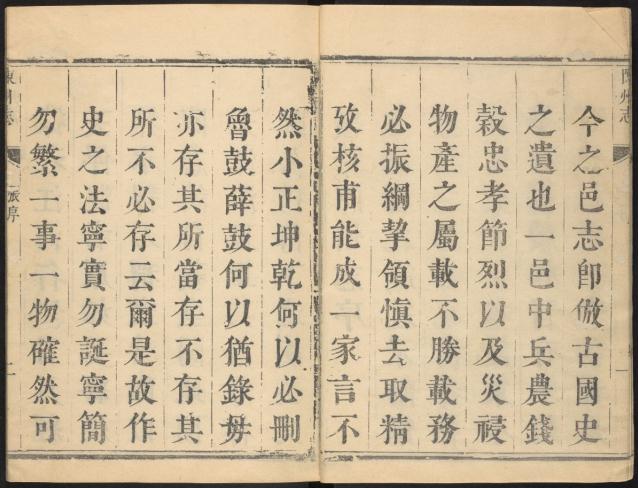 今之邑志卽倣古國史
之遺也一邑中兵農錢
穀忠孝節烈以及災祲
物產之屬載不勝載務
必振綱挈領愼去取精
攷核甫能成一家言不
然小正坤乾何以必刪
魯鼓薛鼓何以猶錄毋
亦存其所當存不存其
所不必存云爾是故作
史之法寧實勿誕寧簡
勿繁一事一物確然可
州志